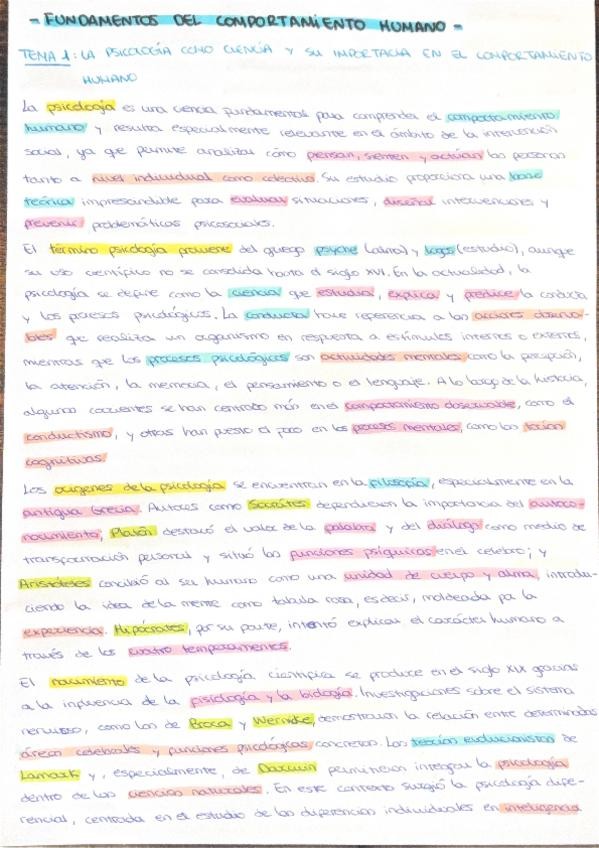 - FUNDAMENTOS DEL COMPORTAMIENTO HUMANO -
TEMA 1: LA PSICOLOGÍA COMO CIENCIA Y SU IMPORTACIA EN EL COMPORTAMIENTO
HUMANO
La psicología es una ciencia fundamental para comprender el comportamiento
humano y resulta especialmente relevante en el ámbito de la intervención
social, ya que permite analizar cómo piensan, sienten y actúan las personas
tanto a nivel individual como colectivo. Su estudio proporciona una base
teórica imprescindible para evaluar situaciones, diseñar intervenciones y
prevenir problemáticas psicosociales.
El término psicología proviene del griego psyche (alma) y logos (estudio), aunque
su uso científico no se consolida hasta el siglo XVI. En la actualidad, la
psicología se define como la ciencia que estudia, explica y predice la conducta
y los procesos psicológicos. La conducta hace referencia a las acciones observa-
bles que realiza un organismo en respuesta a estímulos internos o externos,
mientras que los procesos psicológicos son actividades mentales como la percepción,
la atención, la memoria, el pensamiento o el lenguaje. A lo largo de la historia,
algunas corrientes se han centrado más en el comportamiento observable, como el
conductismo, y otras han puesto el foco en los procesos mentales, como las teorías
cognitivas.
Los orígenes de la psicología se encuentran en la filosofía, especialmente en la
antigua Grecia. Autores como Socrátes dependieron la importancia del autoco-
nocimiento; Platón destacó el valor de la palabra y del diálogo como medio de
transformación personal y situó las funciones psíquicas en el celebro; y
Aristóteles concibió al ser humano como una unidad de cuerpo y alma, introdu-
ciendo la idea de la mente como tabula rosa, es decir, moldeada por la
experiencia. Hipócrates, por su parte, intentó explicar el carácter humano a
través de los cuatro temperamentos.
El nacimiento de la psicología científica se produce en el siglo XIX gracias
a la influencia de la fisiología y la biología. Investigaciones sobre el sistema
nervioso, como las de Broca y Wernicke, demostraron la relación entre determinadas
áreas celebrales y funciones psicológicas concretas. Las teorías evolucionistas de
Lamark y, especialmente, de Darwin permitieron integrar la psicología
dentro de las ciencias naturales. En este contexto surgió la psicología dife-
rencial, centrada en el estudio de las diferencias individuales en inteligencia